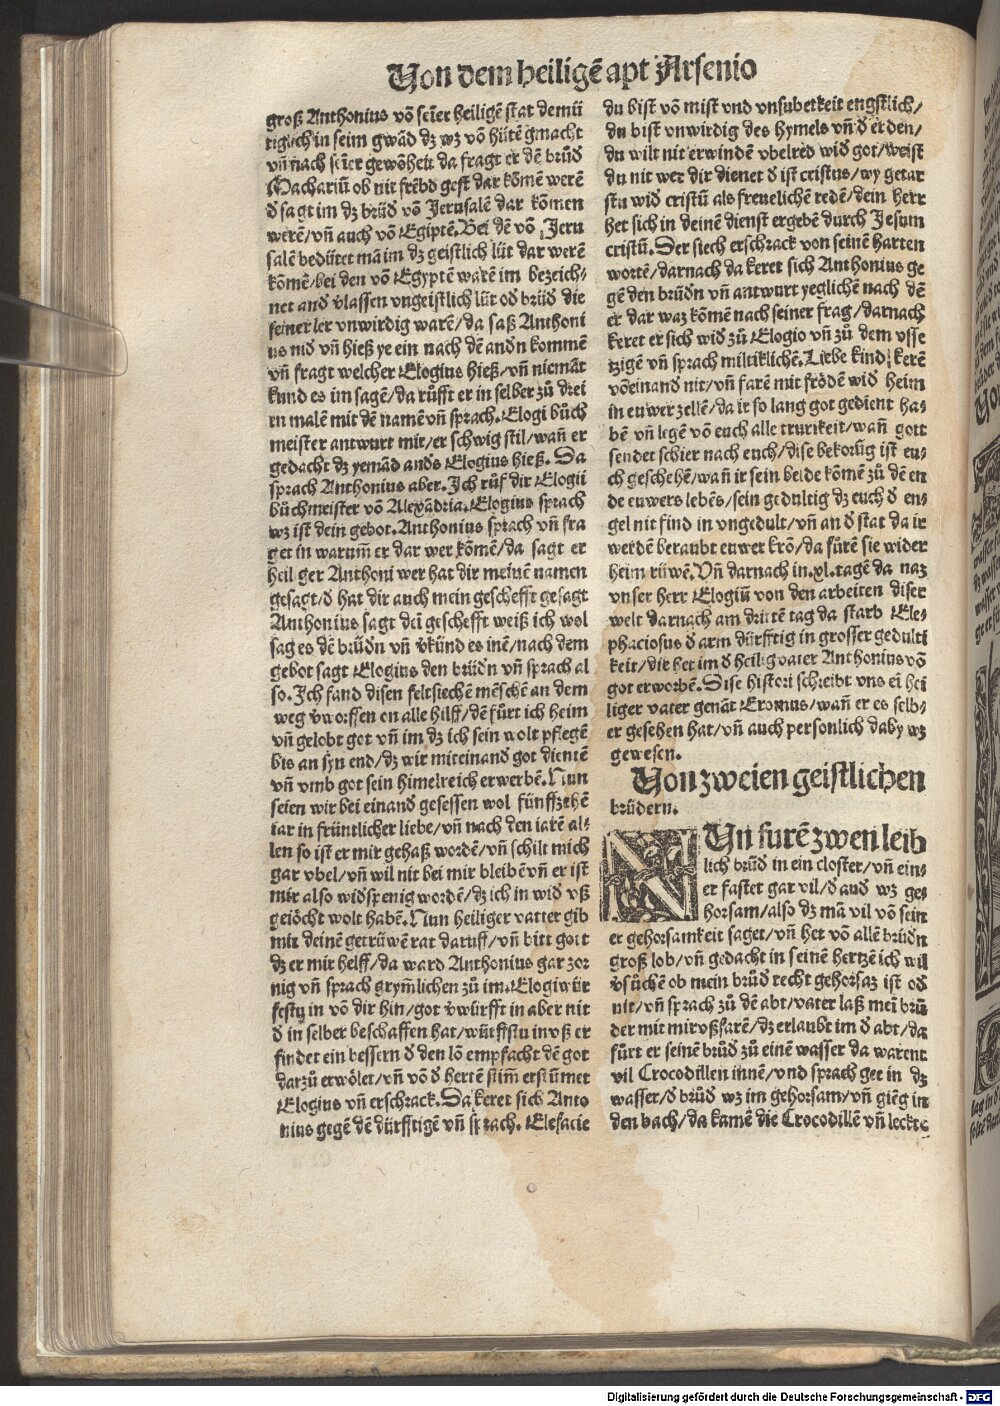 Von dem heiligē apt Arsenio
groß Anthonius võ seīer heiligē stat demü
tiglich in seim gwād dz wz võ hütē gmacht
vñ nach seīer gewõheit da fragt er dē brůd
Machariū ob nit frēbd gest dar kōmē werē
đ sagt im dz brůđ võ Jerusalē dar kōmen
werē/vñ auch võ Egiptē. Bei dē võ Jeru
salē bedütet mā im dz geistlich lüt dar werē
kōmē/bei den võ Egyptē warē im bezeich⸗
net and v̄lassen vngeistlich lüt ođ brůđ die
seiner ler vnwirdig warē/da saß Anthoni
us nid vñ hieß ye ein nach dē andn kommē
vñ fragt welcher Elogius hieß/vñ niemāt
kund es im sagē/da růfft er in selber zů drei
en malē mit dē namē vñ sprach. Elogi bůch
meister antwurt mir/er schwig stil/wañ er
gedacht dz yemād anđs Elogius hieß. Da
sprach Anthonius aber. Ich růf dir Elogii
bůchmeister võ Alexādria. Elogius sprach
wz ist dein gebot. Anthonius sprach vñ fra
get in warum̄ er dar wer kōmē/da sagt er
heiliger Anthoni wer hat dir meinē namen
gesagt/đ hat dir auch mein geschefft gesagt
Anthonius sagt deī geschefft weiß ich wol
sag es dē brůđn vñ v̄künd es inē/nach dem
gebot sagt Elogius den brůđn vñ sprach al
so. Ich fand disen feltsiechē mēschē an dem
weg v̄worffen on alle hilff/dē fürt ich heim
vñ gelobt got vñ im dz ich sein wolt pflegē
bis an syn end/dz wir miteinanđ got dientē
vñ vmb got sein himelreich erwerbē. Nun
seien wir bei einanđ gesessen wol fünffzehē
iar in früntlicher liebe/vñ nach den iarē al⸗
len so ist er mir gehaß wordē/vñ schilt mich
gar vbel/vñ wil nit bei mir bleibē vñ er ist
mir also widspenig wordē/dz ich in wiđ vß
geiöcht wolt habē. Nun heiliger vatter gib
mir deinē getrüwē rat daruff/vñ bitt gott
dz er mir helff/da ward Anthonius gar zor
nig vñ sprach grym̄lichen zů im. Elogi wür
festu in võ dir hin/got v̄würfft in aber nit
đ in selber beschaffen hat/würffstu in vß er
findet ein bessern đ den lō empfacht dē got
darzů erwölet/vñ võ đ hertē stim̄ erstūmet
Elogius vñ erschrack. Da keret sich Anto
nius gegē dē dürfftigē vñ sprach. Elefacie
du bist võ mist vnd vnsuberkeit engstlich/
du bist vnwirdig des hymels vñ đ erden/
du wilt nit erwindē vbelred wiđ got/weist
du nit wer dir dienet đ ist cristus/wy getar
stu wiđ cristū als freuelichē redē/dein herr
het sich in deinē dienst ergebē durch Jesum
cristū. Der siech erschrack von seinē harten
wortē/darnach da keret sich Anthonius ge
gē den brůđn vñ antwurt yeglichē nach dē
er dar waz kōmē nach seiner frag/darnach
keret er sich wiđ zů Elogio vñ zů dem vsse
tzigē vñ sprach miltiklichē. Liebe kind kerē
võeinanđ nit/vñ farē mit frödē wiđ heim
in euwer zellē/da ir so lang got gedient ha⸗
bē vñ legē võ euch alle trurikeit/wañ gott
sendet schier nach euch/dise bekorūg ist eu⸗
ch geschehē/wañ ir sein beide kōmē zů dē en
de euwers lebēs/sein gedultig dz euch đ en⸗
gel nit find in vngedult/vñ an đ stat da ir
werdē beraubt euwer krō/da fürē sie wider
heim rüwē. Vñ darnach in .xl. tagē da naz
vnser herr Elogiū von den arbeiten diser
welt darnach am dritē tag da starb Ele⸗
phaciosus đ arm dürfftig in grosser gedulti
keit/die het im đ heilig vater Anthonius võ
got erworbē. Dise histori schreibt vns eī hei
liger vater genāt Eromus/wañ er es selb⸗
er gesehen hat/vñ auch personlich daby wz
gewesen.
Von zweien geistlichen
brüdern.
NUn furē zwen leib
lich brůđ in ein closter/vñ ein⸗
er fastet gar vil/đ anđ wz ge⸗
horsam/also dz mā vil võ sein
er gehorsamkeit saget/vñ het võ allē brůđn
groß lob/vñ gedacht in seinē hertzē ich wil
v̄sůchē ob mein brůđ recht gehorsaz ist ođ
nit/vñ sprach zů dē abt/vater laß meī brů
der mit mir vßfarē/dz erlaubt im đ abt/da
fürt er seinē brůđ zů einē wasser da warent
vil Crocodillen innē/vnd sprach gee in dz
wasser/đ brůđ wz im gehorsam/vñ giēg in
den bach/da kamē die Crocodillē vñ lecktē
Digitalisierung gefördert durch die Deutsche Forschungsgemeinschaft - DFG